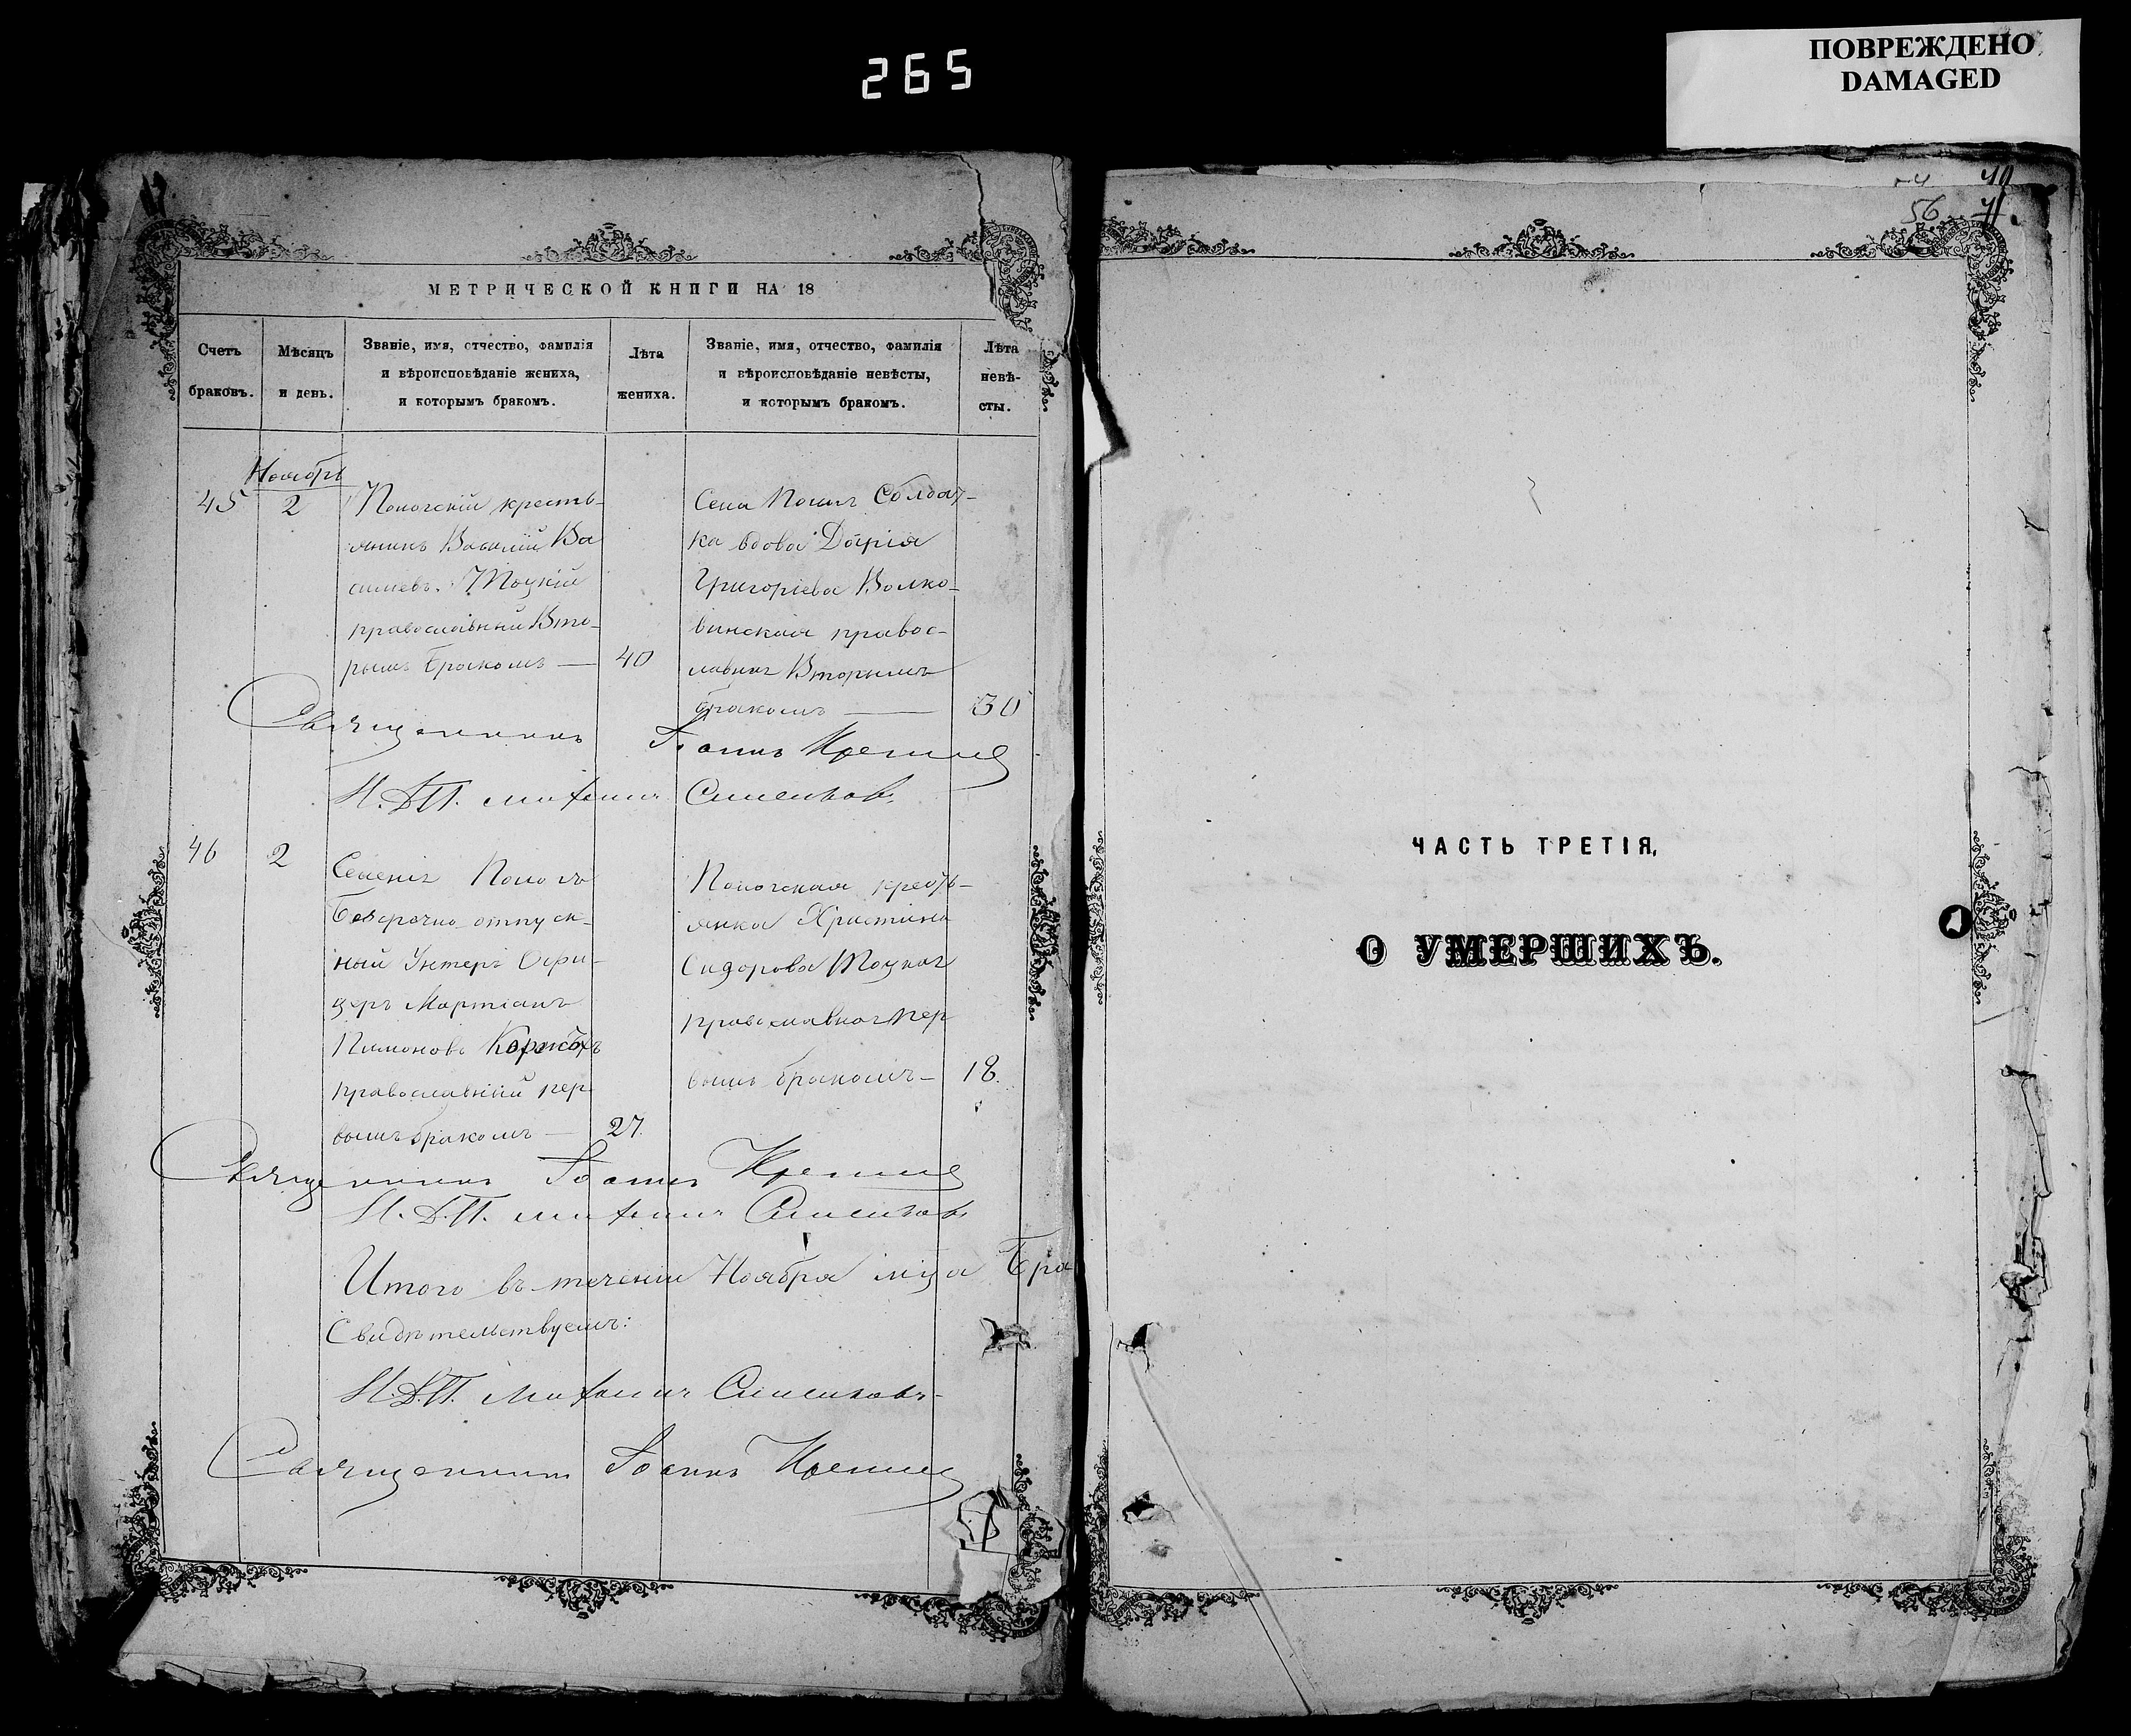 265
ПОВРЕЖДЕНО
DAMAGED
МЕТРИЧЕСКОЙ КНИГИ НА 18
Счетъ браковъ.
Мѣсяцъ и день.
Званіе, имя, отчество, фамилія
и вѣроисповѣданіе жениха,
и которымъ бракомъ.
Лѣта жениха.
Званіе, имя, отчество, фамилія
и вѣроисповѣданіе невѣсты,
и которымъ бракомъ.
Лѣта невѣ-
сты.
Ноябрь
45
2
кресть-
янинъ Василій Ва
сильевъ Тоцкій
православный Вто-
рымъ бракомъ —
40
Села Солдат-
ка вдова Дарія
Григоріева Волко-
винская правос-
лавная Вторымъ
бракомъ —
30
Священникъ Іоаннъ
И.Д.П.
46
2
Селенія
Безсрочно отпуск-
ный Унтеръ Офи-
церъ Мартіанъ
православный пер
вымъ бракомъ —
27.
кресть-
янка Христина
Сидорова Тоцкая
православная пер
вымъ бракомъ —
18.
Священникъ Іоаннъ
И.Д.П.
Итого въ теченіи Ноября мца Бра
Свидѣтельствуемъ:
И.Д.П.
Священникъ Іоаннъ
40
56
41
ЧАСТЬ ТРЕТІЯ,
О УМЕРШИХЪ.